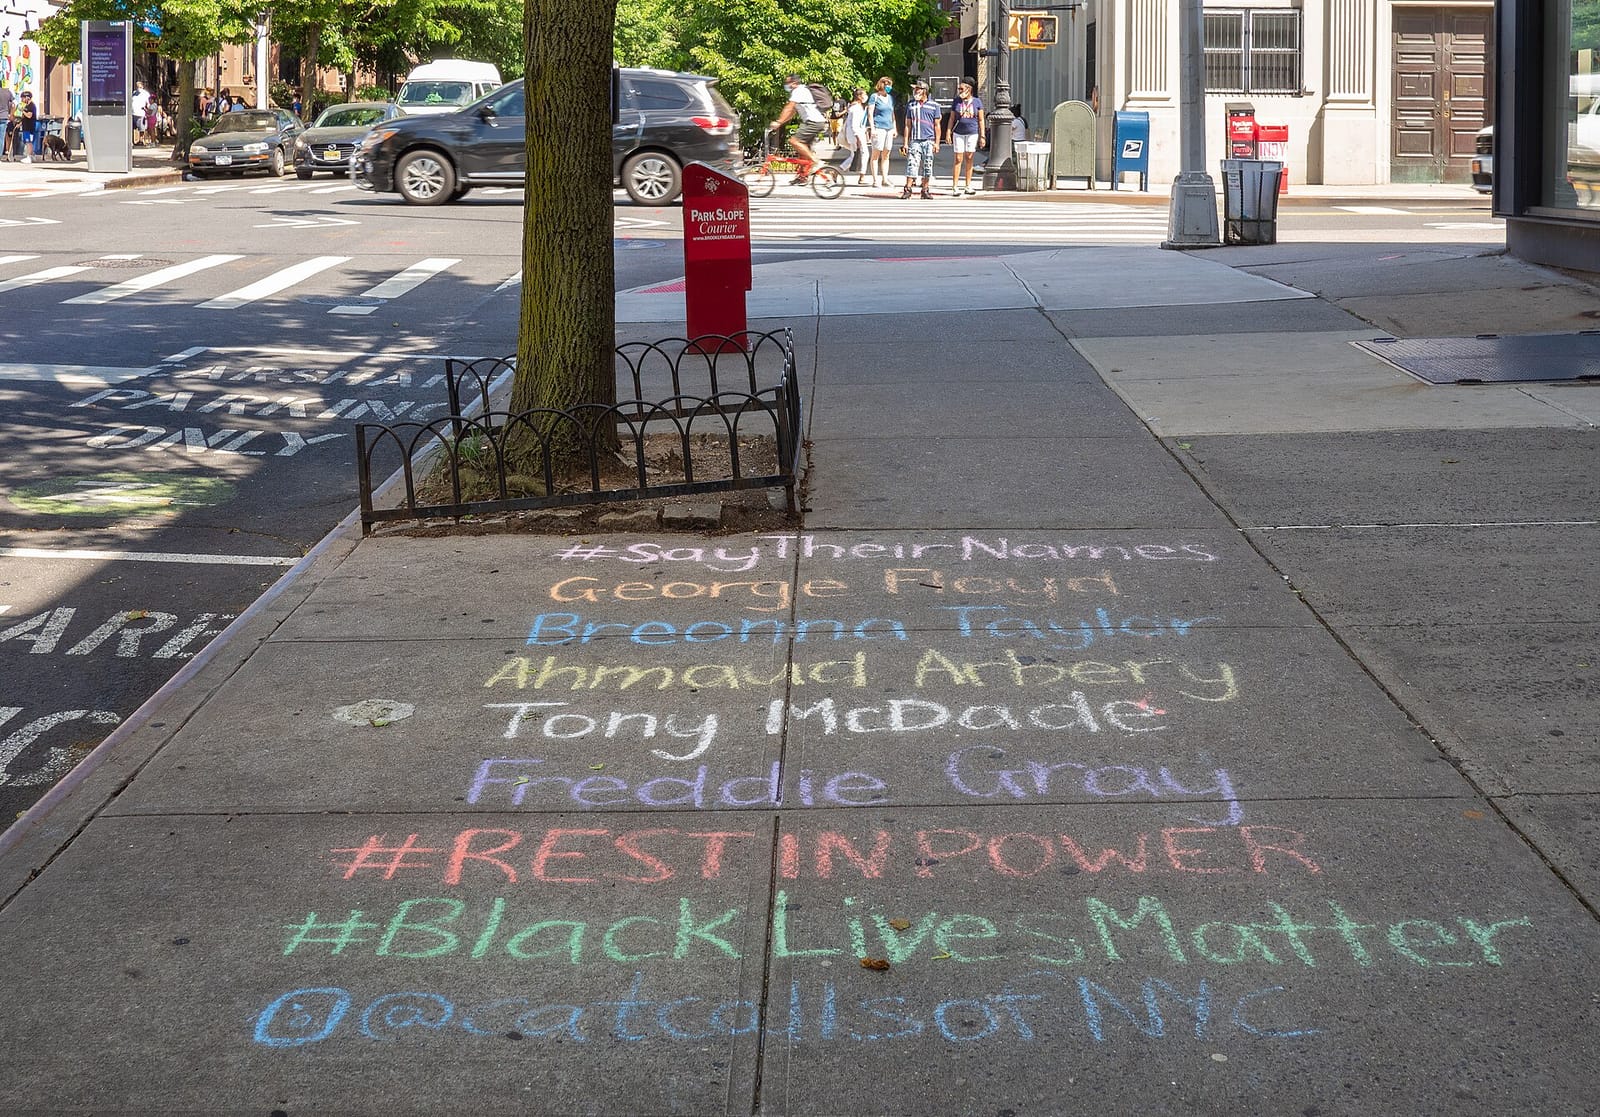 PARK SLOPE
Courier
www.BROOKLYNDAILY.com
CARSHARE
PARKING
ONLY
#SayTheirNames
George Floyd
Breonna Taylor
Ahmaud Arbery
Tony McDade
Freddie Gray
#RESTINPOWER
#BlackLivesMatter
@catcallsofNYC